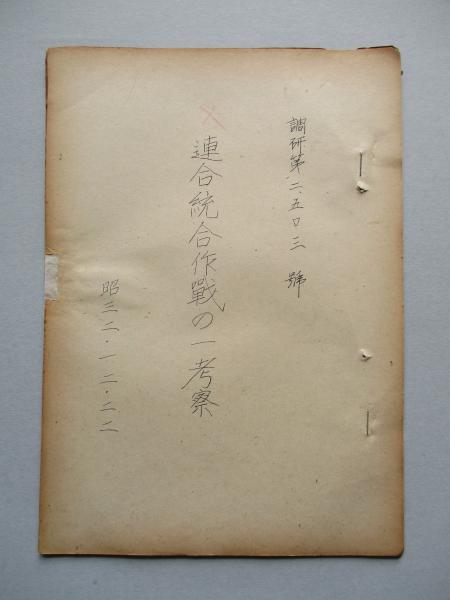 調研第二、五〇三號
連合統合作戰の一考察
昭三二・一二・二二